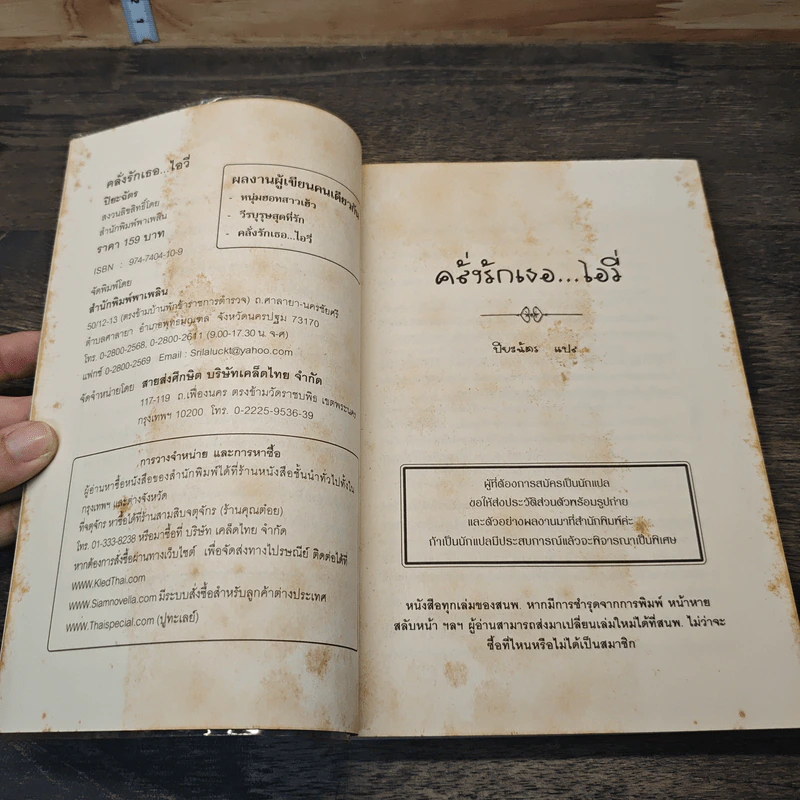 คลั่งรักเธอ...ไอวี่
ปิยะฉัตร
สงวนลิขสิทธิ์โดย
สำนักพิมพ์พาเพลิน
ราคา 159 บาท
ISBN : 974-7404-10-9
จัดพิมพ์โดย
สำนักพิมพ์พาเพลิน
50/12-13 (ตรงข้ามบ้านพักข้าราชการตำรวจ) ถ.ศาลายา-นครชัยศรี
ตำบลศาลายา อำเภอพุทธมณฑล จังหวัดนครปฐม 73170
โทร. 0-2800-2568, 0-2800-2611 (9.00-17.30 น. จ-ศ)
แฟกซ์ 0-2800-2569 Email : Srilaluckt@yahoo.com
จัดจำหน่ายโดย สายส่งศึกษิต บริษัทเคล็ดไทย จำกัด
117-119 ถ.เฟื่องนคร ตรงข้ามวัดราชบพิธ เขตพระนคร
กรุงเทพฯ 10200 โทร. 0-2225-9536-39
ผลงานผู้เขียนคนเดียวกัน
- หนุ่มฮอทสาวเฮ้ว
- วีรบุรุษสุดที่รัก
- คลั่งรักเธอ...ไอวี่
การวางจำหน่าย และการหาซื้อ
ผู้อ่านหาซื้อหนังสือของสำนักพิมพ์ได้ที่ร้านหนังสือชั้นนำทั่วไปทั้งใน
กรุงเทพฯ และต่างจังหวัด
ที่จตุจักร หาซื้อได้ที่ร้านสามสิบจตุจักร (ร้านคุณต๋อย)
โทร. 01-333-8238 หรือมาซื้อที่ บริษัท เคล็ดไทย จำกัด
หากต้องการสั่งซื้อผ่านทางเว็บไซต์ เพื่อจัดส่งทางไปรษณีย์ ติดต่อได้ที่
www.KledThai.com
www.Siamnovella.com มีระบบสั่งซื้อสำหรับลูกค้าต่างประเทศ
www.Thaispecial.com (ปูทะเลย์)
คลั่งรักเธอ...ไอวี่
ปิยะฉัตร แปล
ผู้ที่ต้องการสมัครเป็นนักแปล
ขอให้ส่งประวัติส่วนตัวพร้อมรูปถ่าย
และตัวอย่างผลงานมาที่สำนักพิมพ์ค่ะ
ถ้าเป็นนักแปลมีประสบการณ์แล้วจะพิจารณาเป็นพิเศษ
หนังสือทุกเล่มของสนพ. หากมีการชำรุดจากการพิมพ์ หน้าหาย
สลับหน้า ฯลฯ ผู้อ่านสามารถส่งมาเปลี่ยนเล่มใหม่ได้ที่สนพ. ไม่ว่าจะ
ซื้อที่ไหนหรือไม่ได้เป็นสมาชิก